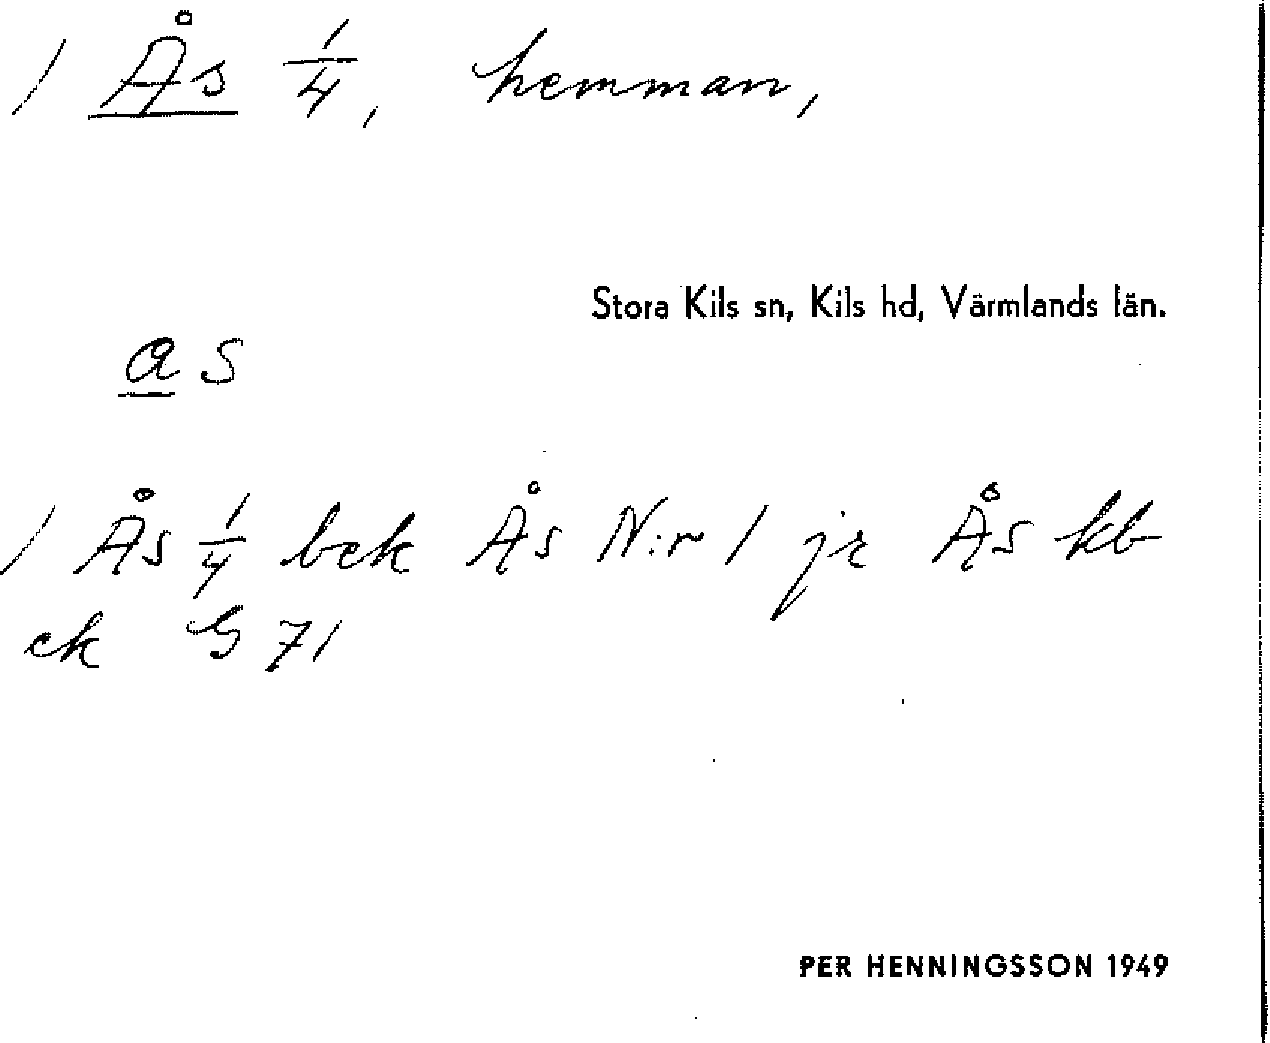 1 Ås 1/4, hemman,
Stora Kils sn, Kils hd, Värmlands län.
a s
1 Ås 1/4 bek Ås N:r 1 jr Ås kb
ek G 71
PER HENNINGSSON 1949